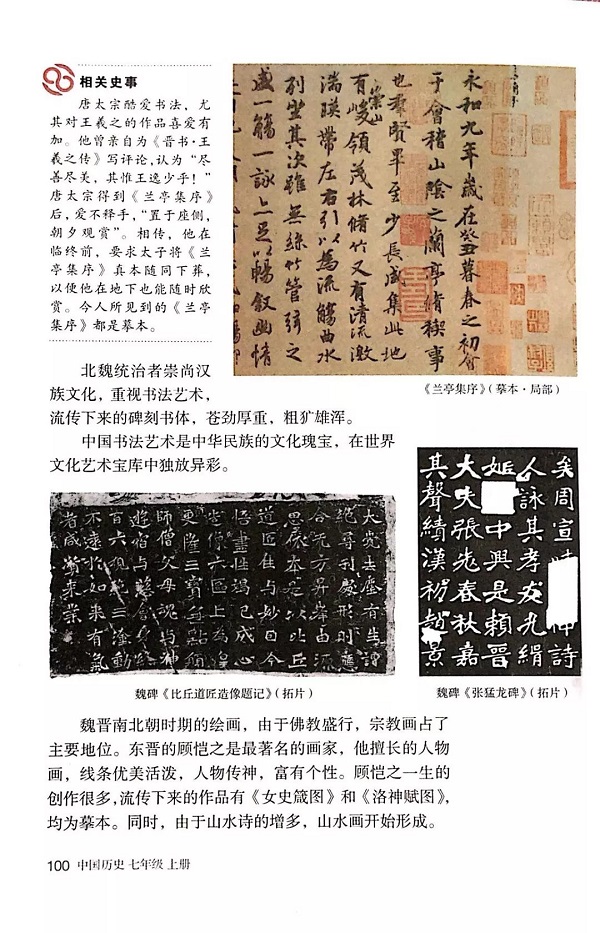 相关史事
唐太宗酷爱书法，尤
其对王羲之的作品喜爱有
加。他曾亲自为《晋书·王
羲之传》写评论，认为“尽
善尽美，其惟王逸少乎！”
唐太宗得到《兰亭集序》
后，爱不释手，“置于座侧，
朝夕观赏”。相传，他在
临终前，要求太子将《兰
亭集序》真本随同下葬，
以便他在地下也能随时欣
赏。今人所见到的《兰亭
集序》都是摹本。
永和九年歲在癸丑暮春之初會
于會稽山陰之蘭亭脩稧事
也羣賢畢至少長咸集此地
有崇山峻領茂林脩竹又有清流激
湍暎帶左右引以為流觴曲水
列坐其次雖無絲竹管弦之
盛一觴一詠亦足以暢敘幽情
《兰亭集序》（摹本·局部）
北魏统治者崇尚汉
族文化，重视书法艺术，
流传下来的碑刻书体，苍劲厚重，粗犷雄浑。
中国书法艺术是中华民族的文化瑰宝，在世界
文化艺术宝库中独放异彩。
魏碑《比丘道匠造像题记》（拓片）
矣周宣時
神詩
人詠其孝友光緝
姬
中興是賴晉
大夫張老春秋嘉
其聲績漢初趙景
魏碑《张猛龙碑》（拓片）
魏晋南北朝时期的绘画，由于佛教盛行，宗教画占了
主要地位。东晋的顾恺之是最著名的画家，他擅长的人物
画，线条优美活泼，人物传神，富有个性。顾恺之一生的
创作很多，流传下来的作品有《女史箴图》和《洛神赋图》，
均为摹本。同时，由于山水诗的增多，山水画开始形成。
100 中国历史 七年级 上册